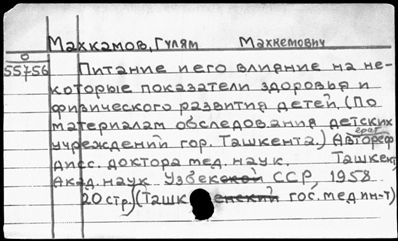 Махкамов, Гулям Махкемович
0
55756 Питание и его влияние на не-
которые показатели здоровья и
физического развития детей. (По
материалам обследования детских
учреждений гор. Ташкента.) Автореф
дисс. доктора мед. наук. Ташкент
Акад. наук Узбекской ССР, 1958
20 стр. (Ташк енский гос. мед ин-т)